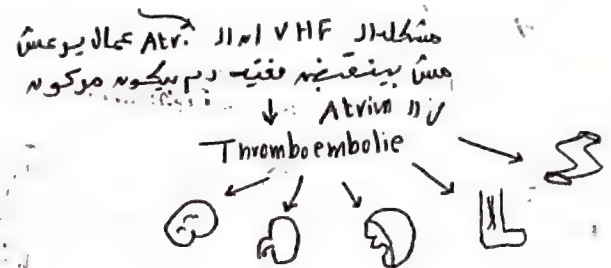 مشكلة الـ VHF ان الـ Atri عمال يرعش
مش بينقبض ففيه دم بيكون مركون
في الـ Atrium
Thromboembolie